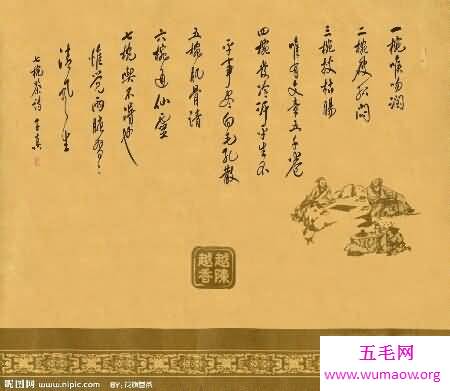 一椀喉吻润
二椀破孤闷
三椀搜枯肠
唯有文章五千卷
四椀发轻汗平生不
平事尽向毛孔散
五椀肌骨清
六椀通仙灵
七椀喫不得也
惟觉两腋習〻
清风生
七椀茶诗
越陳
越香
昵图网 www.nipic.com BY:
五毛网
www.wumaow.org